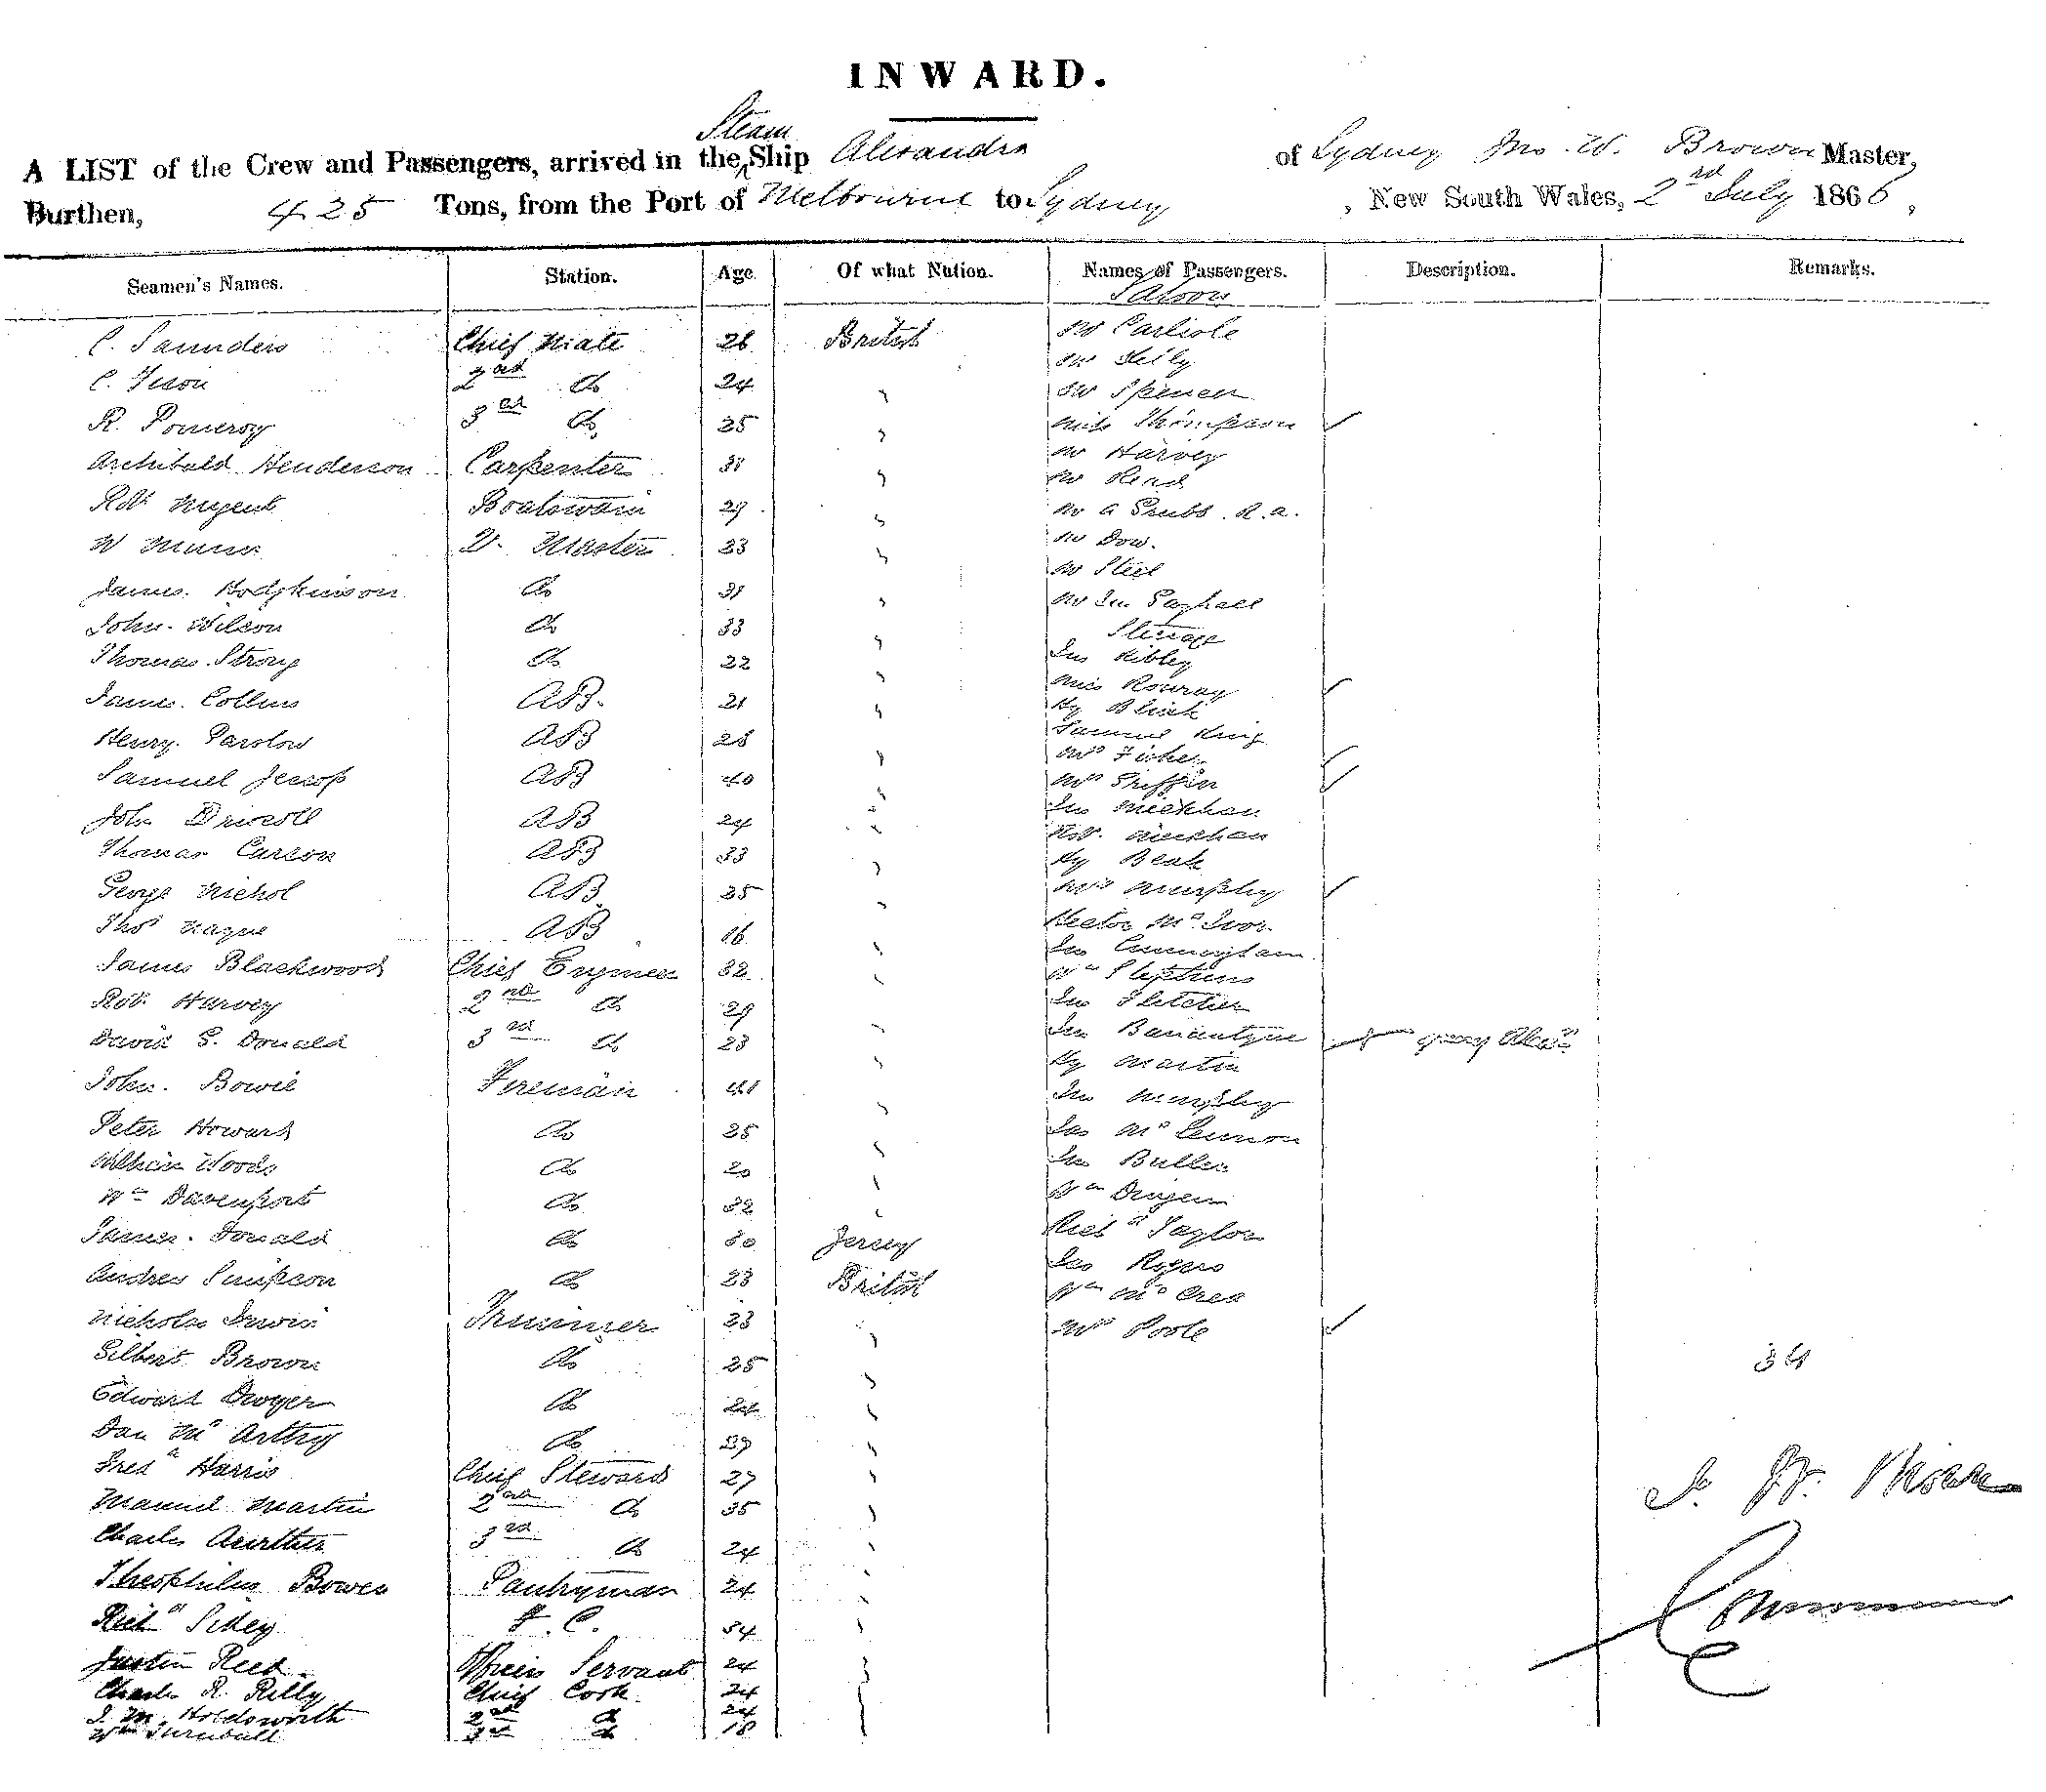 INWARD.
Steam
A LIST of the Crew and Passengers, arrived in the Ship Alexandra of Sydney Jno. W. Brown Master,
Burthen, 425 Tons, from the Port of Melbourne to Sydney, New South Wales, 2nd July 1866,
Seamen's Names. Station. Age Of what Nation. Names of Passengers. Description. Remarks.
Saloon
C. Saunders Chief Mate 26 British Mr Carlisle
Mr Selby
C. 2nd do 24 " Mr Spencer
R. Pomeroy 3rd do 25 " Miss Thompson
Archibald Henderson Carpenter 31 " Mr Harvey
Mr Read
Robt Nugent Boatswain 29 " Mr G R.A.
W Munn Q. Master 33 " Mr Dow.
Mr Steel
James Hodgkinson do 31 " Mr Jno Raphael
John Wilson do 33 " Steerage
Thomas Strong do 22 " Jno Sibley
James Collins AB. 21 " Miss
Hy Black
Henry Parslow AB 28 " Samuel King
Mrs Fisher
Samuel Jessop AB 40 " Mrs Griffin
John Driscoll AB 24 " Jno
Robt
Thomas Curson AB 33 " Hy Beak
George Nichol AB 25 " Mrs Murphy
Thos Nague AB 16 " Hector McIvor
Jno Cunningham
James Blackwood Chief Engineer 32 " Wm Stephens
Robt Harvey 2nd do 29 " Jno Fletcher
David G. Donald 3rd do 23 " Jno Banantyne
John Bowie Fireman 41 " Hy Martin
Jno Murphy
Peter Howard do 25 " Jas McLennon
William Woods do 20 " Jno Butler
Wm Davenport do 32 " Wm
James Donald do 30 Jersey Richd Taylor
Andrew Simpson do 23 British Jas Rogers
Wm McCrea
Nicholas Irwin Trimmer 23 " Mrs Poole
Gilbert Brown do 25 " 34
Edward Dwyer do 24 "
Dan McArthy do 29 "
Fredk Harris Chief Steward 27 "
Manuel Martin 2nd do 35 "
Charles 3rd do 24 "
Theophilus Bowen Pantryman 24 "
Richd F. C. 54 "
Justin Reed Officers Servant 24 "
Charles R. Rilly Chief Cook 24
J. M. Holdsworth 2nd do 24
Wm Turnbull 3rd do 18
Commr